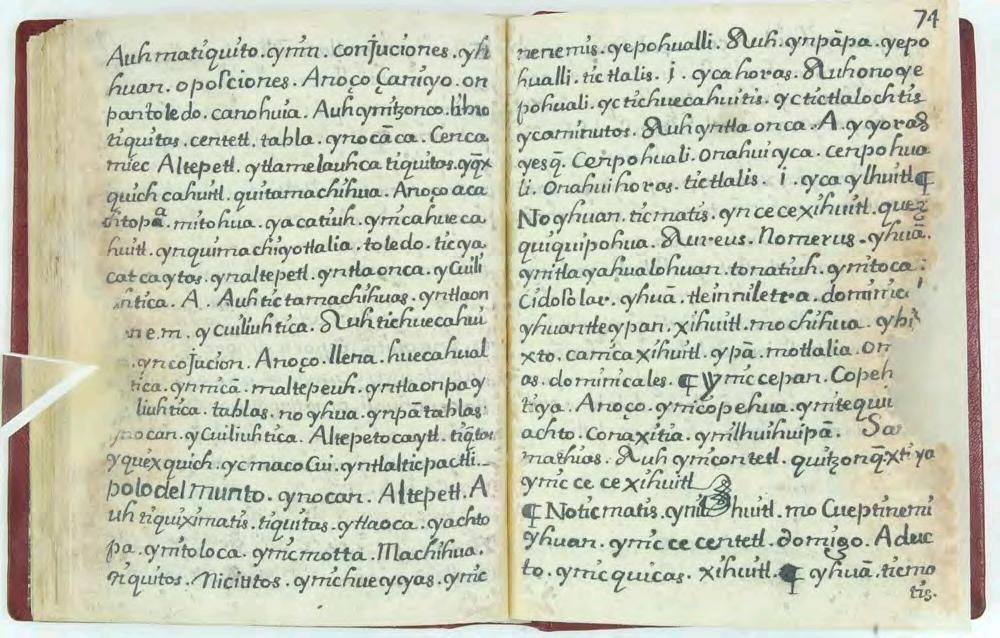 Auh matiquito. ynin. conjuciones. yh
huan. oposciones. Anoço Çaniyo. on
pantoledo. canohuia. Auh ynitzonco. libro
tiquitas. centetl. tabla. ynocāca. Cenca
miec Altepetl. ytlamelauhca tiquitas. yq̄x
quich cahuitl. quitamachihua. Anoço aca
titopa. mitohua. yacatiuh. ynicahueca
huitl. ynquimachiyotlalia. toledo. ticya
catcaytas. ynaltepetl. yntlaonca. ycuili
tica. A. Auh tictamachihuas. yntlaon
ne.m. ycuiliuhtica. Auh tichuecahui
.yncojucion. Anoço. llena. huecahual
tica. ynnicā. maltepeuh. yntlaonpa y
liuhtica. tablas. no yhua. ynpā tablas
ynocan. ycuiliuhtica. Altepetocaytl.
yquexquich. ycmacoCui. yntlalticpactli.
polo del munto. ynocan. Altepetl. A
uh tiquiximatis. tiquitas. ytlaoca. yachto
pa. ynitoloca. ynicmotta. Machihua.
niquitos. Nicititos. ynichueyyas. ynic
74
nenemis. yepohualli. Auh. ynpāpa. yepo
hualli. tictlalis. j. yca horas. Auh ono ye
pohuali. yc tichuecahuitis. yc tictlalochtis
ycaminutos. Auh yntla onca. A. y yoras
yesq̄. Cenpohuali. onahui yca. cenpohua
li. onahui horas. tictlalis. i. yca ylhuitl ¶
No yhuan. ticmatis. yn ce ce xihuitl.
quiquipohua. Aureus. Nomerus. yhuā.
ynitlayahualohuan. tonatiuh. ynitoca:
Ciclo solar. yhuā. tlein niletra. dominic
yhuantleypan. xihuitl. mochihua. ybi
xto. canicaxihuitl. ypā. motlalia. on
as. dominicales. ¶ ynic cepan. Copeh
tiya. Anoço. ynicopehua. ynitequi
achto. Conaxitia. ynilhuihuipā. Sa
mathias. Auh ynicontetl. quitzonq̄xtiya
ynic ce ce xihuitl
¶ No ticmatis. ynilhuitl. mo Cueptinemi
yhuan. ynic ce centetl. domigo. Aduc
to. ynic quicas. xihuitl. ¶ yhuā. ticmo
tis.